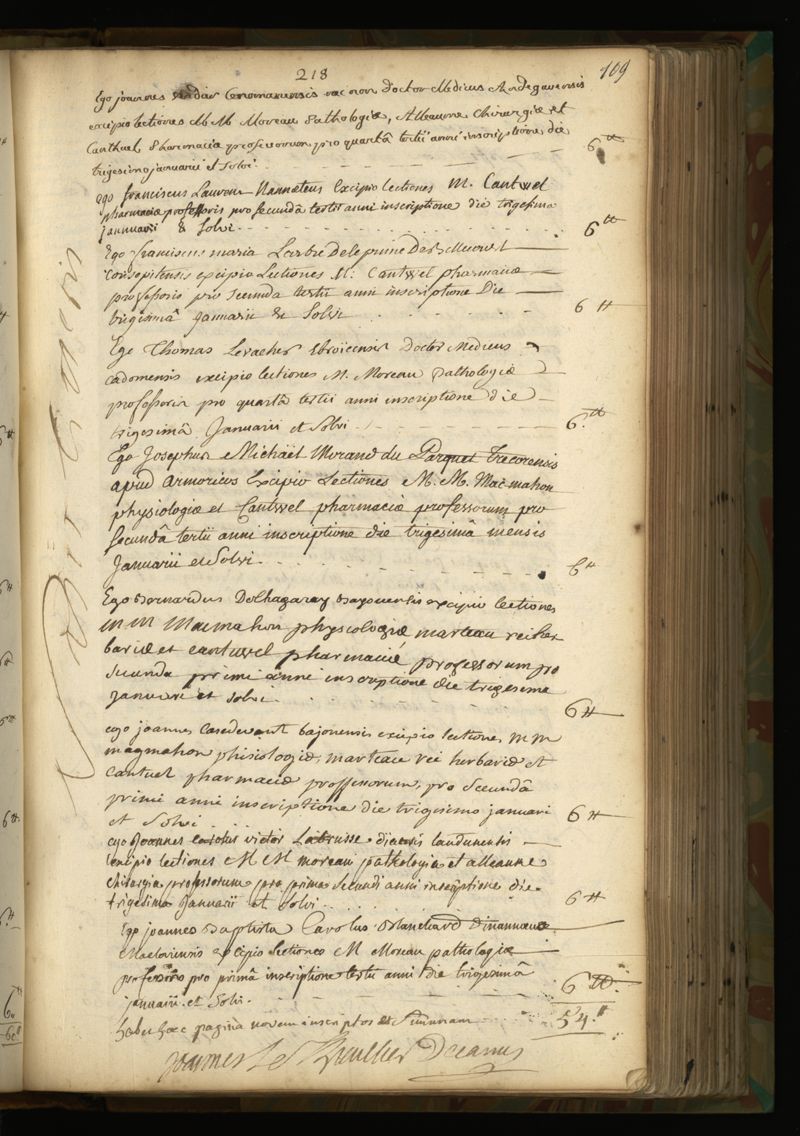 218
109
Ego joannes Cenomanensis nec non doctor Medicus Andegavensis
excipio lectiones M M Moreau Pathologiæ, Alleaume Chirurgiæ et
Cantuel Pharmaciæ professorum pro quartâ tertii anni inscriptione die
trigesimo januarii et solvi. 6 ₶
ego franciscus Laurent Nanneteus Excipio lectiones M. Cantwel
pharmaciæ professoris pro secundâ tertii anni inscriptione die trigesima
januarii & solvi. 6 ₶
Ego franciscus maria
corisopitensis excipio Lectiones M: Cantwel pharmaciæ
professoris pro secunda tertii anni inscriptione Die
trigesimâ januarii & Solvi 6 ₶
Ego Thomas Levacher Ebroïcensis Doctor Medicus
cadomensis excipio lectiones M. Moreau Pathologiæ
professoris pro quartâ tertii anni inscriptione die
trigesimâ Januarii et solvi. 6. ₶
Ego Josephus Michaël Morand du Parquet Trecorensis
apud armoricos Excipio Lectiones M. M. Mac-mahon
physiologiæ et Cantwel pharmaciæ professorum pro
secundâ tertii anni inscriptione die trigesimâ mensis
Januarii et Solvi. 6 ₶
Ego Bernardus Dolhagaray Bayonensis excipio lectiones
M M Macmahon physiologiæ marteau rei her
bariæ et cantwel pharmaciæ professorum pro
secunda primi anni inscriptione die trigesime
januarii et solvi. 6 ₶
ego joannes Casedevant bajonensis excipio lectiones m m
magmahon phisiologiæ, marteau rei herbariæ et
Cantuel pharmaciæ proffesorum, pro secundâ
primi anni inscriptione die trigisimo januari
et solvi 6 ₶
ego joannes victor Labrusse laudunensis
excipio lectiones M M moreau pathologiæ et alleaune
chirurgiæ professorum pro prima secundi anni inscriptione die
trigesima januarii et solvi. 6 ₶
Ego joannes Baptista Carolus Blanchard Dinannæus
Macloviensis excipio lectiones M Moreau pathologiæ
professoris pro primâ inscriptione tertii anni die trigesimâ
januarii et solvi. 6 ₶
habet hæc pagina novem inscriptos et summam 54. ₶
joannes Le Thuillier Decanus